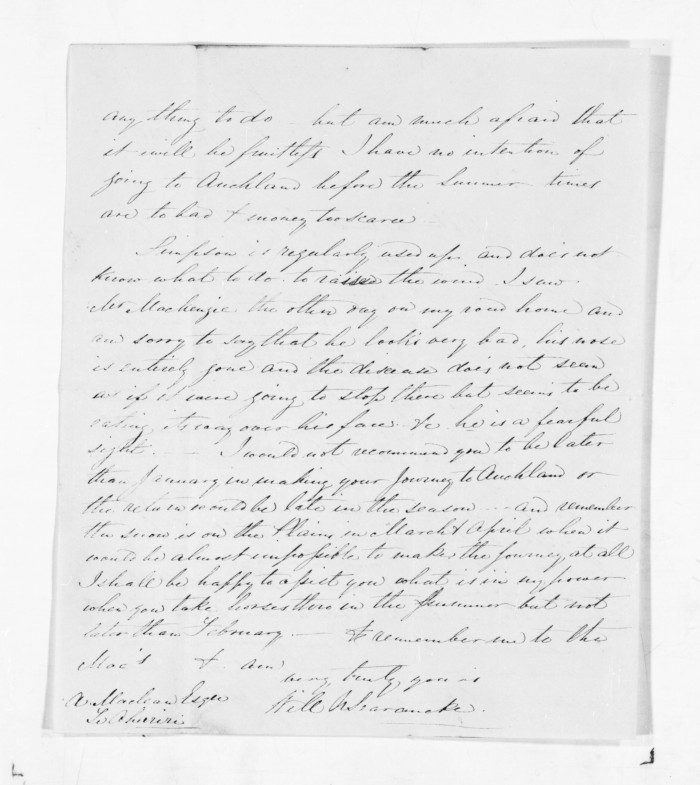 any thing to do - but am much afraid that
it will be fruitless I have no intention of
going to Auckland before the Summer times
are to bad & money too scarce
Simpson is regularly used up. and does not
know what to do to raise the wind. I saw
Mr Mackenzie the other day on my road home and
am sorry to say that he look's very bad, his nose
is entirely gone and the disease does not seem
as if it were going to stop there but seems to be
eating its way over his face & he is a fearful
sight. — I would not recommend you to be later
than January in making your Journey to Auckland or
the return would be late in the season — and remember
the snow is on the Plains in March & April when it
would be almost impossible to make the journey at all
I shall be happy to assist you what is in my power
when you take horses there in the Summer but not
later than February. — & remember me to the
Mac's & am
very truly yours
Will
A Maclean Esqre
Te Ahuriri